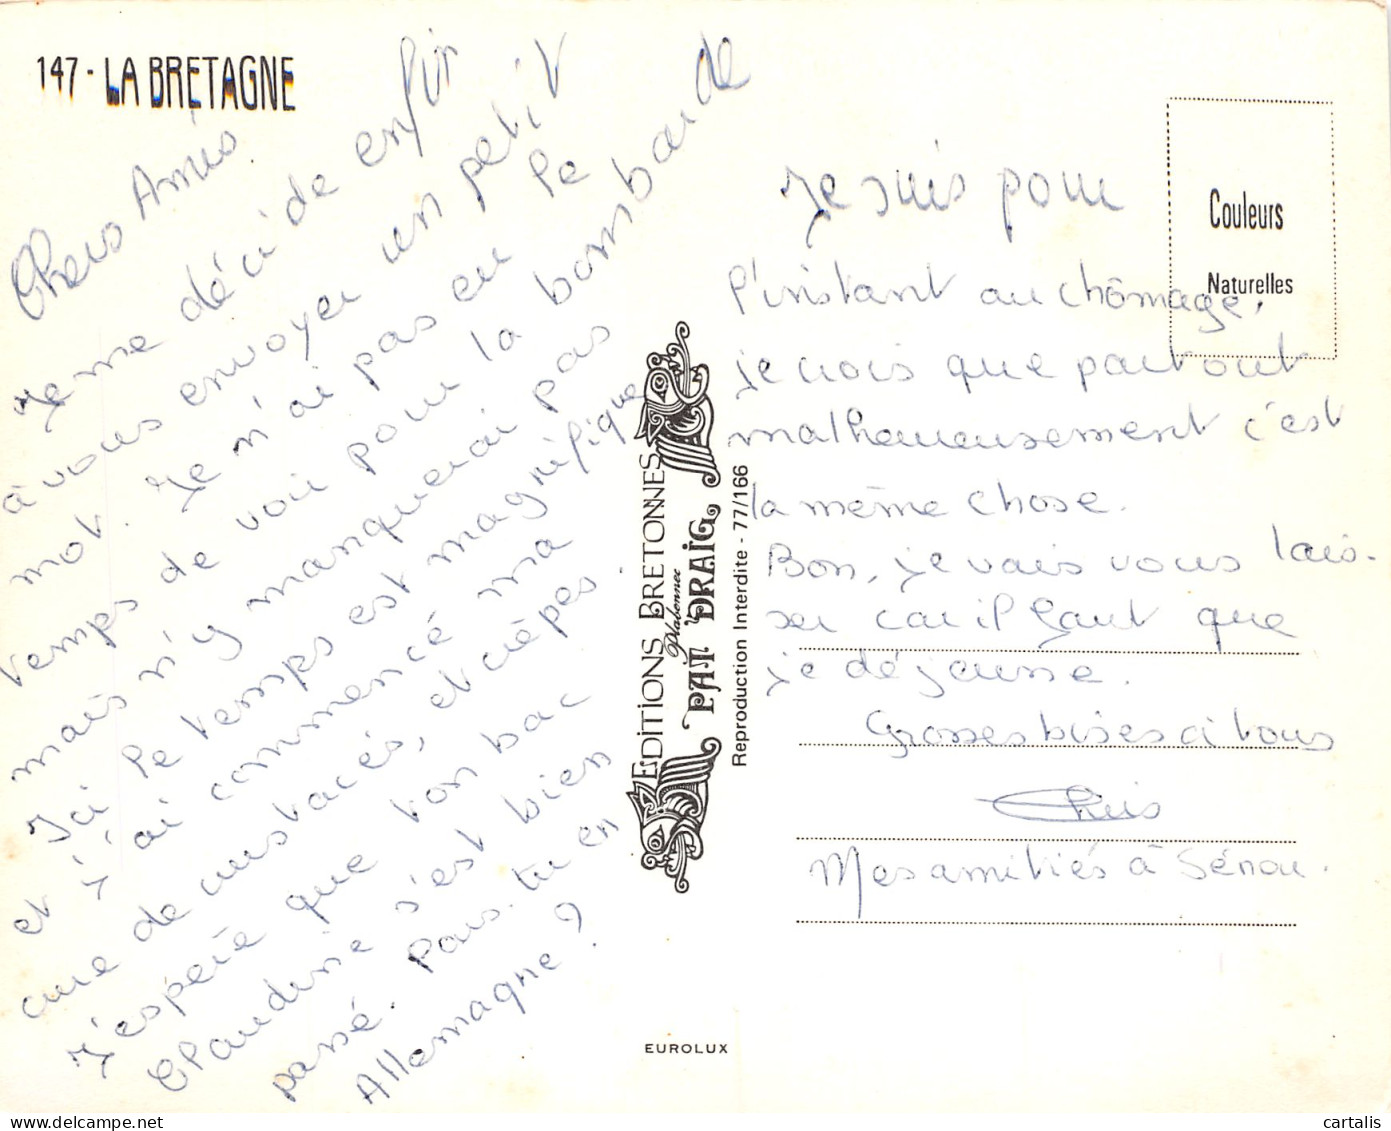 147 - LA BRETAGNE
Chers Amis
Je me décide enfin
à vous envoyer un petit
mot. Je n'ai pas eu le
temps de voir pour la bombarde
mais n'y manquerai pas
Ici le temps est magnifique
et j'ai commencé ma
cure de crustacés, et crêpes
J'espère que ton bac
Claudine s'est bien
passé. Pars-tu en
Allemagne ?
EDITIONS BRETONNES
Plabennec
PAIT DRAIG
Reproduction Interdite - 77/166
EUROLUX
Couleurs
Naturelles
Je suis pour
l'instant au chômage,
je crois que partout
malheureusement c'est
la même chose.
Bon, je vais vous lais-
ser car il faut que
je déjeune.
Grosses bises à tous
Chris
Mes amitiés à
cartalis
www.delcampe.net